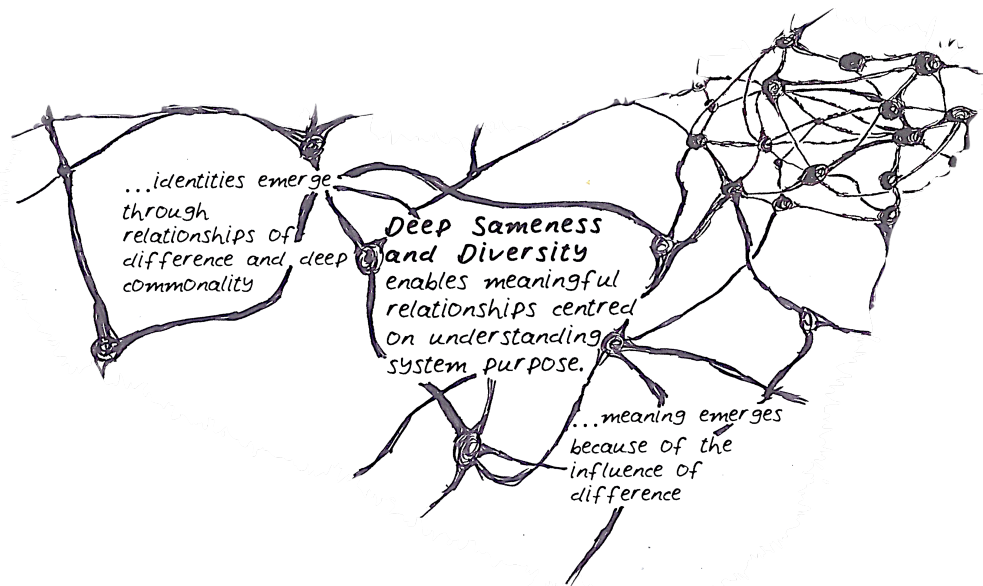 ...identities emerge
through
relationships of
difference and deep
commonality
Deep Sameness
and Diversity
enables meaningful
relationships centred
on understanding
system purpose.
...meaning emerges
because of the
influence of
difference